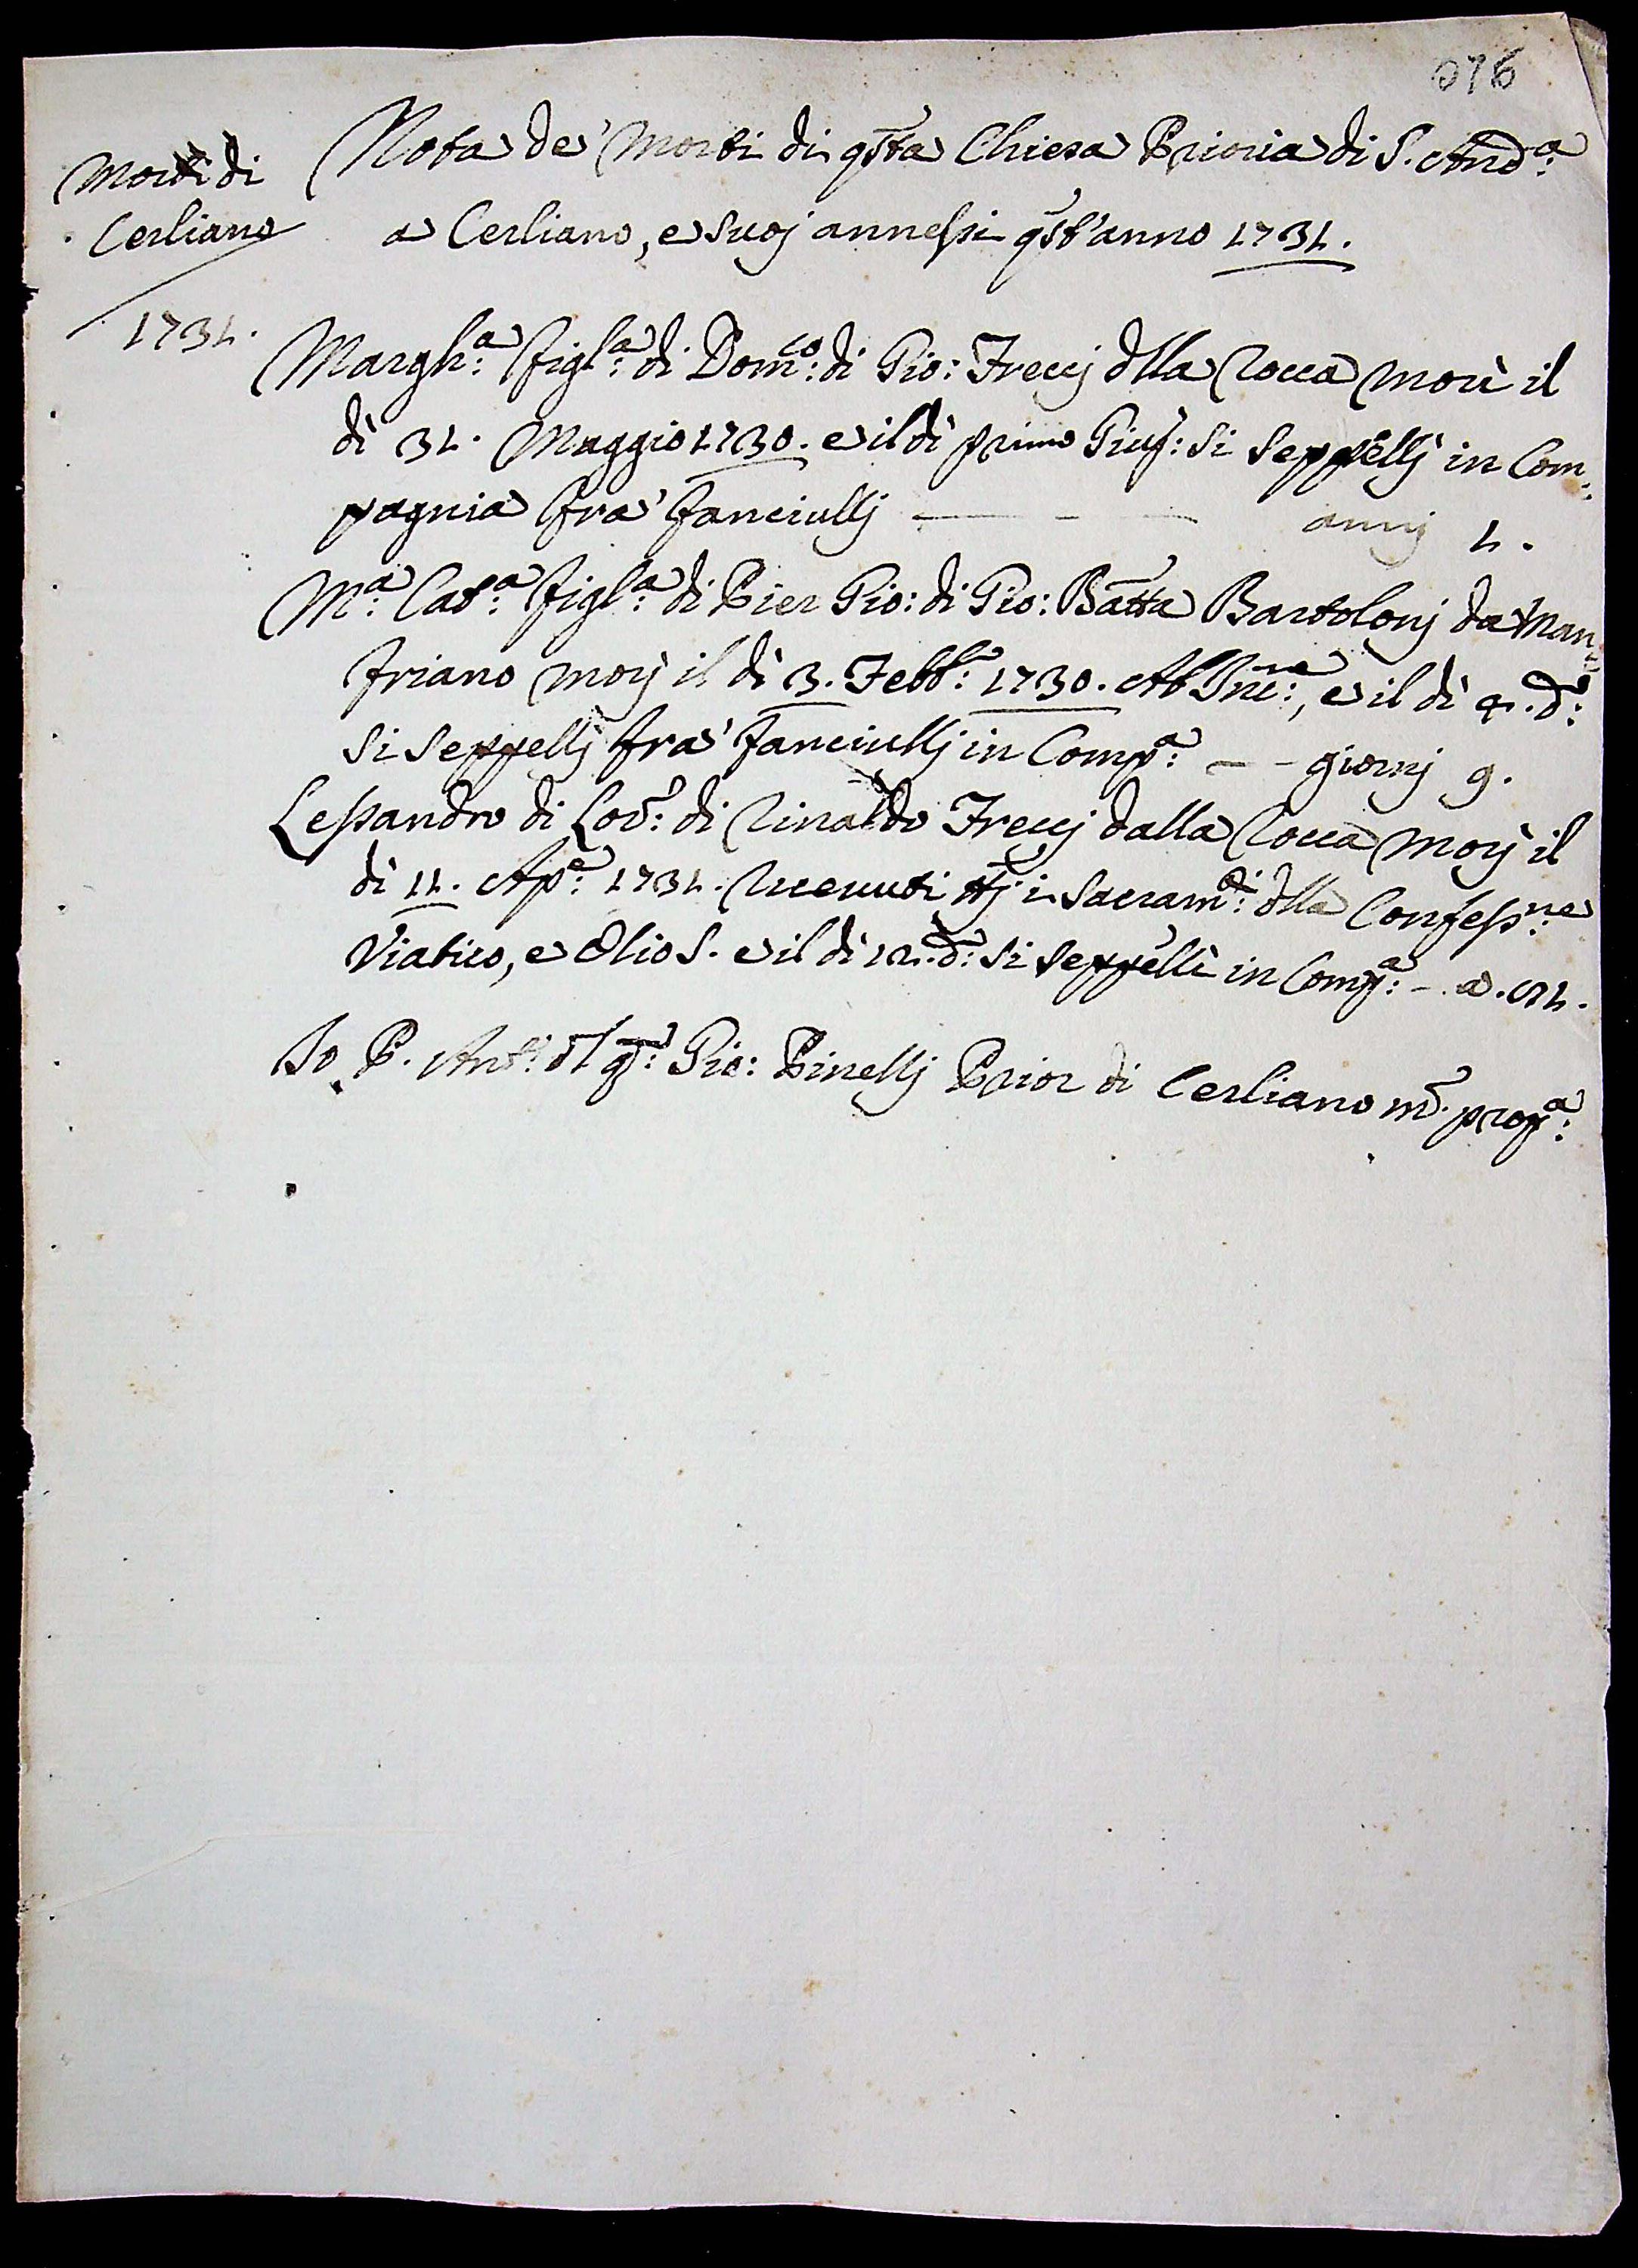 076
Morti di
Cerliano
1731.
Nota de' Morti di qsta Chiesa Prioria di S. And.a
a Cerliano, e suoj annessi qst'anno 1731.
Margh:a figl:a di Dom:co di Gio: Frecj dlla Rocca morì il
dì 31. Maggio 1730. e il dì primo Giug: si seppellj in Com:
pagnia fra' fanciullj — - — annj 1.
M:a Cat:a figl:a di Pier Gio: di Gio: Batta Bartolonj da Man:
friano morj il dì 3. Febb: 1730. Ab Inc:ne, e il dì 4. d:
si seppellj fra' fanciullj in Comp:a — - giornj 9.
Lessandro di Lod: di Rinaldo Frecj dalla Rocca morj il
dì 11. Ap:e 1731. Ricevuti ttj i Sacram:ti dlla Confess:ne
Viatico, e Olio S. e il dì 12. d: si seppellì in Comp:a - a.
Io P. Ant: dl q: Gio: Pinellj Prior di Cerliano m: prop:a